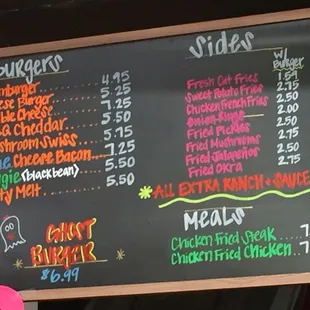 Burgers
mburger 4.95
eese Burger 5.25
ble Cheese 7.25
Q Cheddar 5.50
shroom Swiss 5.75
ue Cheese Bacon 7.25
gie (black bean) 5.50
ty Melt 5.50
Ghost
Burger
$6.99
Sides
w/
Burger
Fresh Cut Fries 1.59
Sweet Potato Fries 2.75
Chicken French Fries 2.50
Onion Rings 2.00
Fried Pickles 2.75
Fried Mushrooms 2.50
Fried Jalapeños 2.50
Fried Okra 2.75
*ALL EXTRA RANCH + SAUCE
Meals
Chicken Fried Steak 7
Chicken Fried Chicken 7